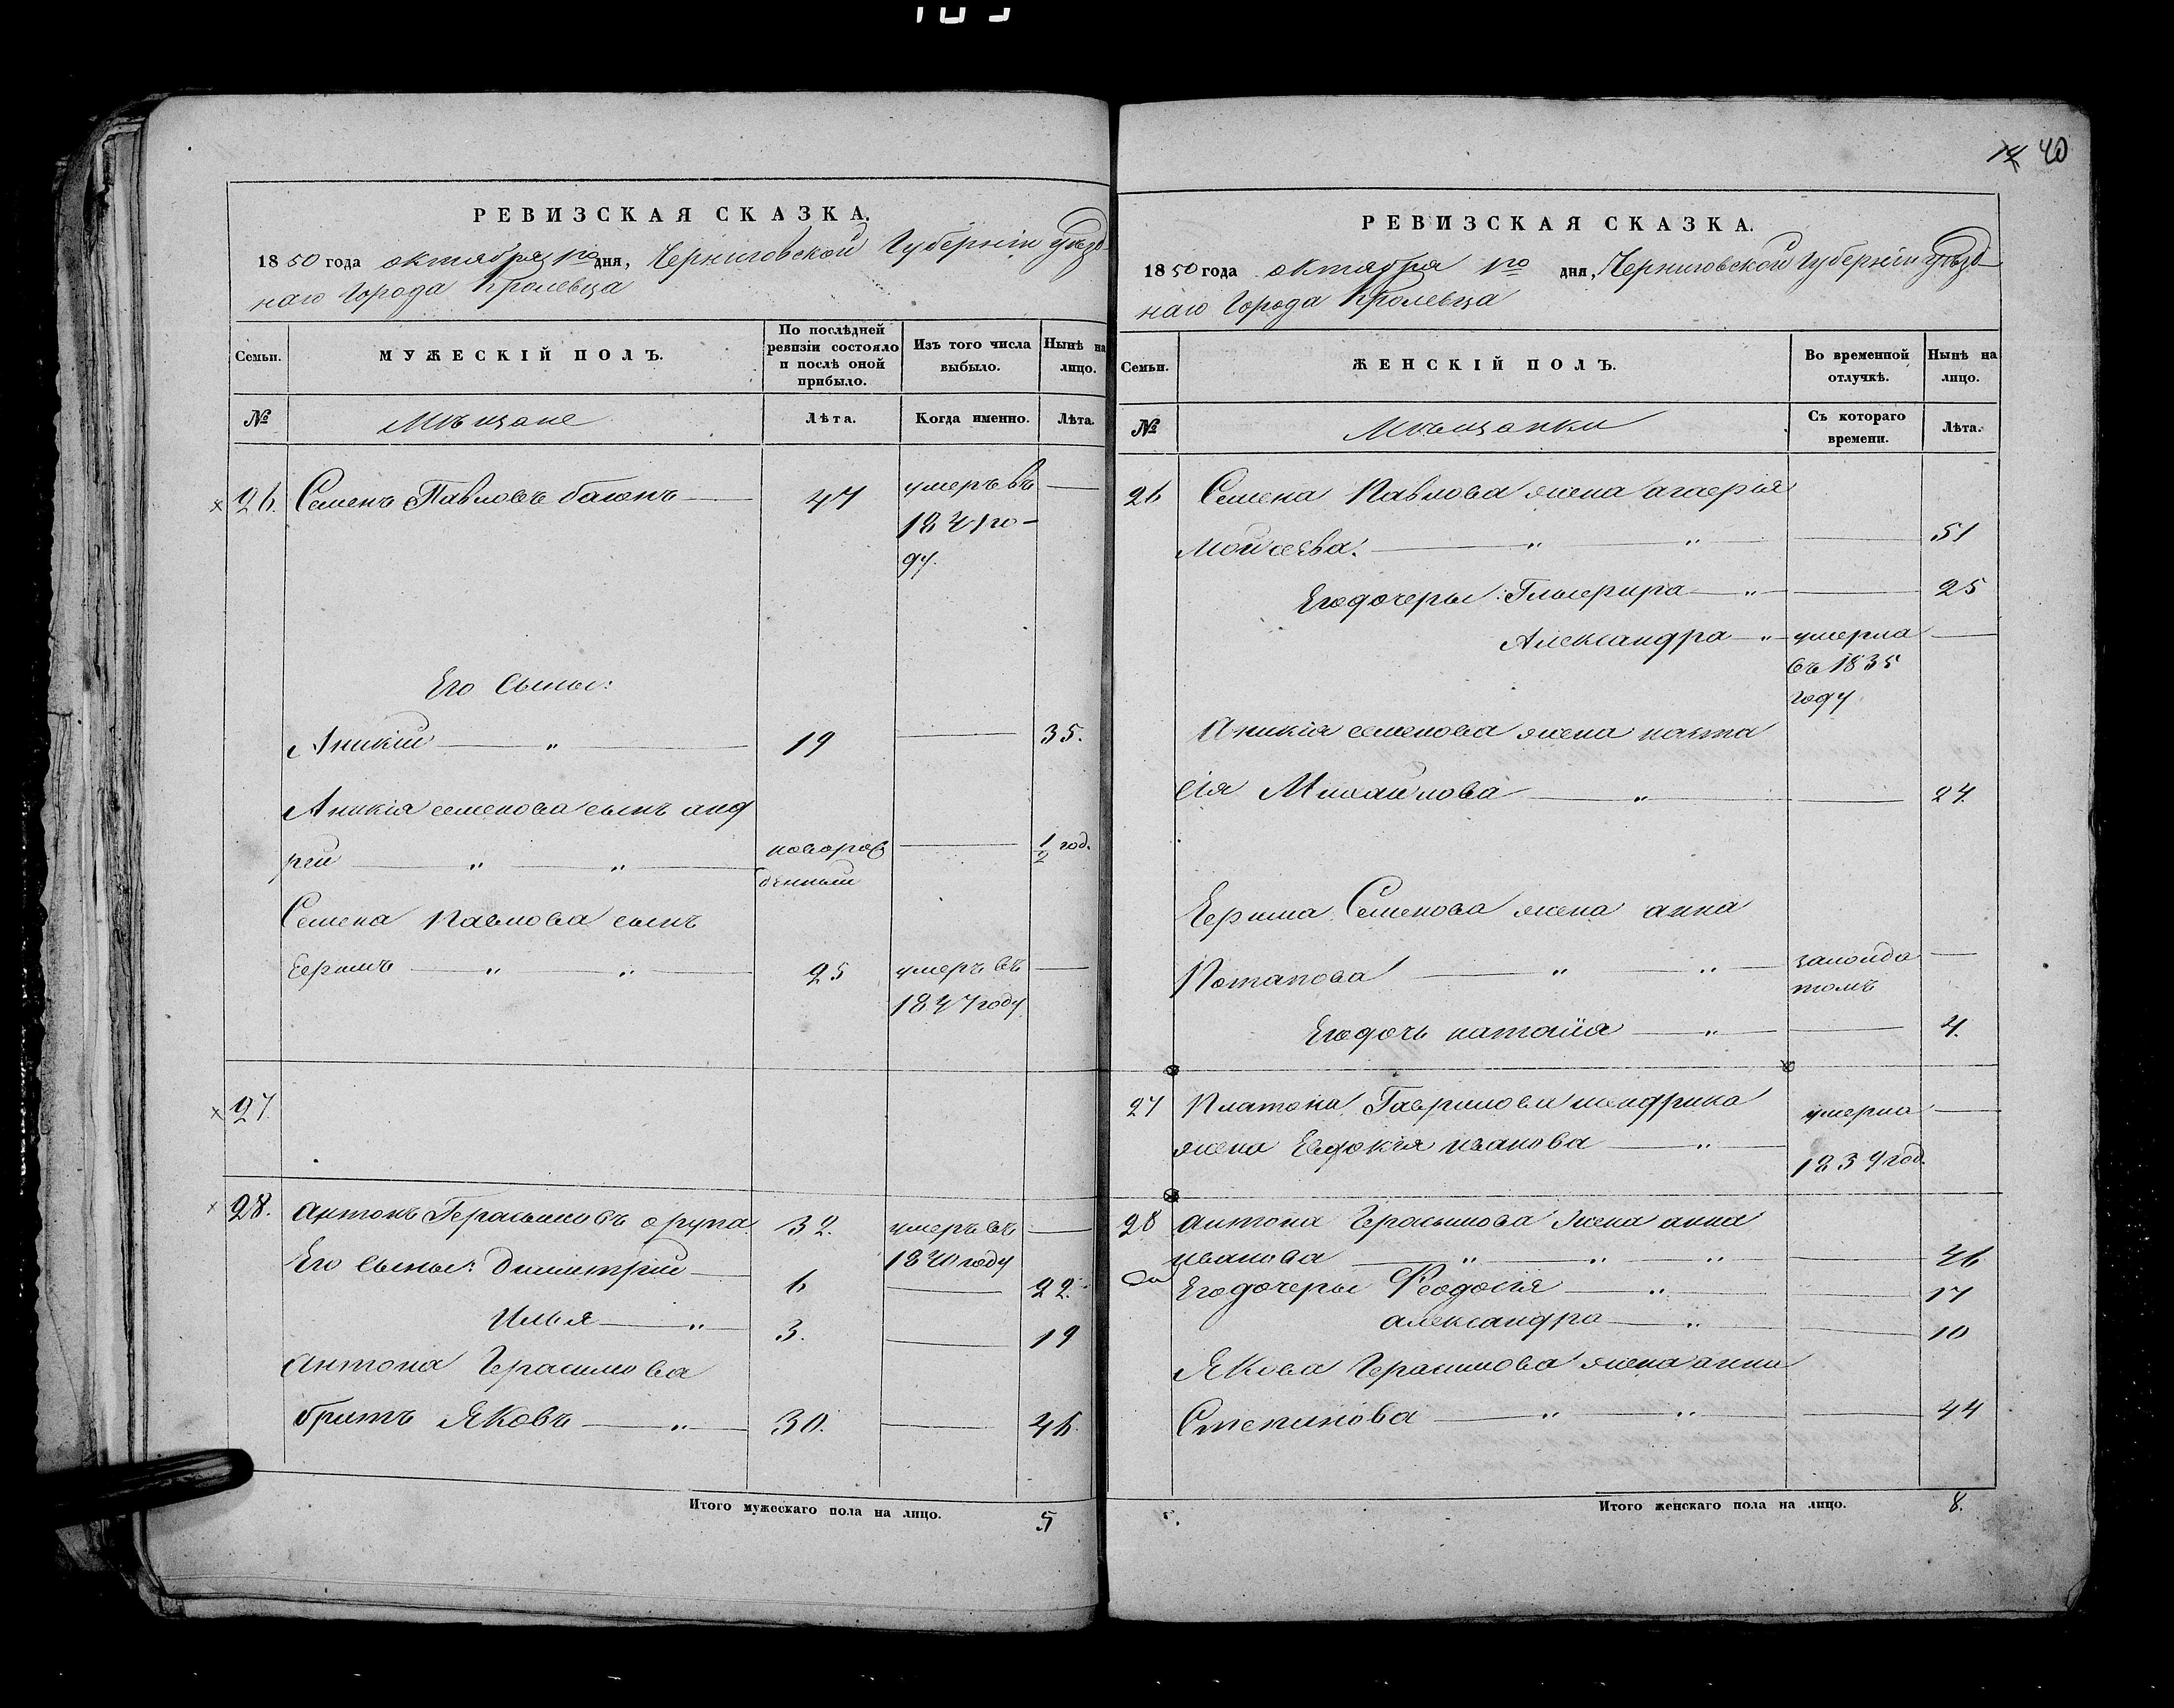 14 40
РЕВИЗСКАЯ СКАЗКА.
1850 года октября 1го дня, Черниговской Губерніи уѣзд-
наго Города Кролевца
Семьи.
МУЖЕСКІЙ ПОЛЪ.
По послѣдней ревизіи состояло и послѣ оной прибыло.
Изъ того числа выбыло.
Нынѣ на лицо.
№
Мѣщане
Лѣта.
Когда именно.
Лѣта.
26. Семенъ Павловъ баюнъ 47 умеръ въ —
1841 го-
ду.
Его Сыны:
Аникій — " — 19 — 35.
Аникія семенова сынъ анд
рей " " новорож — 1/2 год.
денный
Семена Павлова сынъ
Ефримъ — " " — 25 умеръ въ —
1847 году
27.
28. Антонъ Герасимовъ 32. умеръ въ —
Его Сыны: димитрій — 6 1840 году 22.
Илья — " — 3. — 19
Антона Герасимова
братъ Яковъ — " — 30. — 46
Итого мужескаго пола на лицо. 5
РЕВИЗСКАЯ СКАЗКА.
1850 года октября 1го дня, Черниговской Губерніи уѣзд-
наго Города Кролевца
Семьи.
ЖЕНСКІЙ ПОЛЪ.
Во временной отлучкѣ.
Нынѣ на лицо.
№
Мѣщанки
Съ котораго времени.
Лѣта.
26 Семена Павлова жена
Моисеева. — " " — 51
Его дочеры: Гликирра — " — 25
Александра — " — умерла —
въ 1835
году
Аникія семенова жена наста
сія Михайлова — " — 24.
Ефрима Семенова жена анна
Потапова — " " — —
Его дочь наталія — " — 4.
27 Платона Гаврилова шендрика умерла —
жена Евдокія иванова — " — 1839 год.
28 Антона Герасимова жена анна
иванова — " " " — 46
Его дочеры Феодосія — " — 17
александра — " — 10
Якова Герасимова жена анна
Степанова — " " — 44
Итого женскаго пола на лицо. 8.